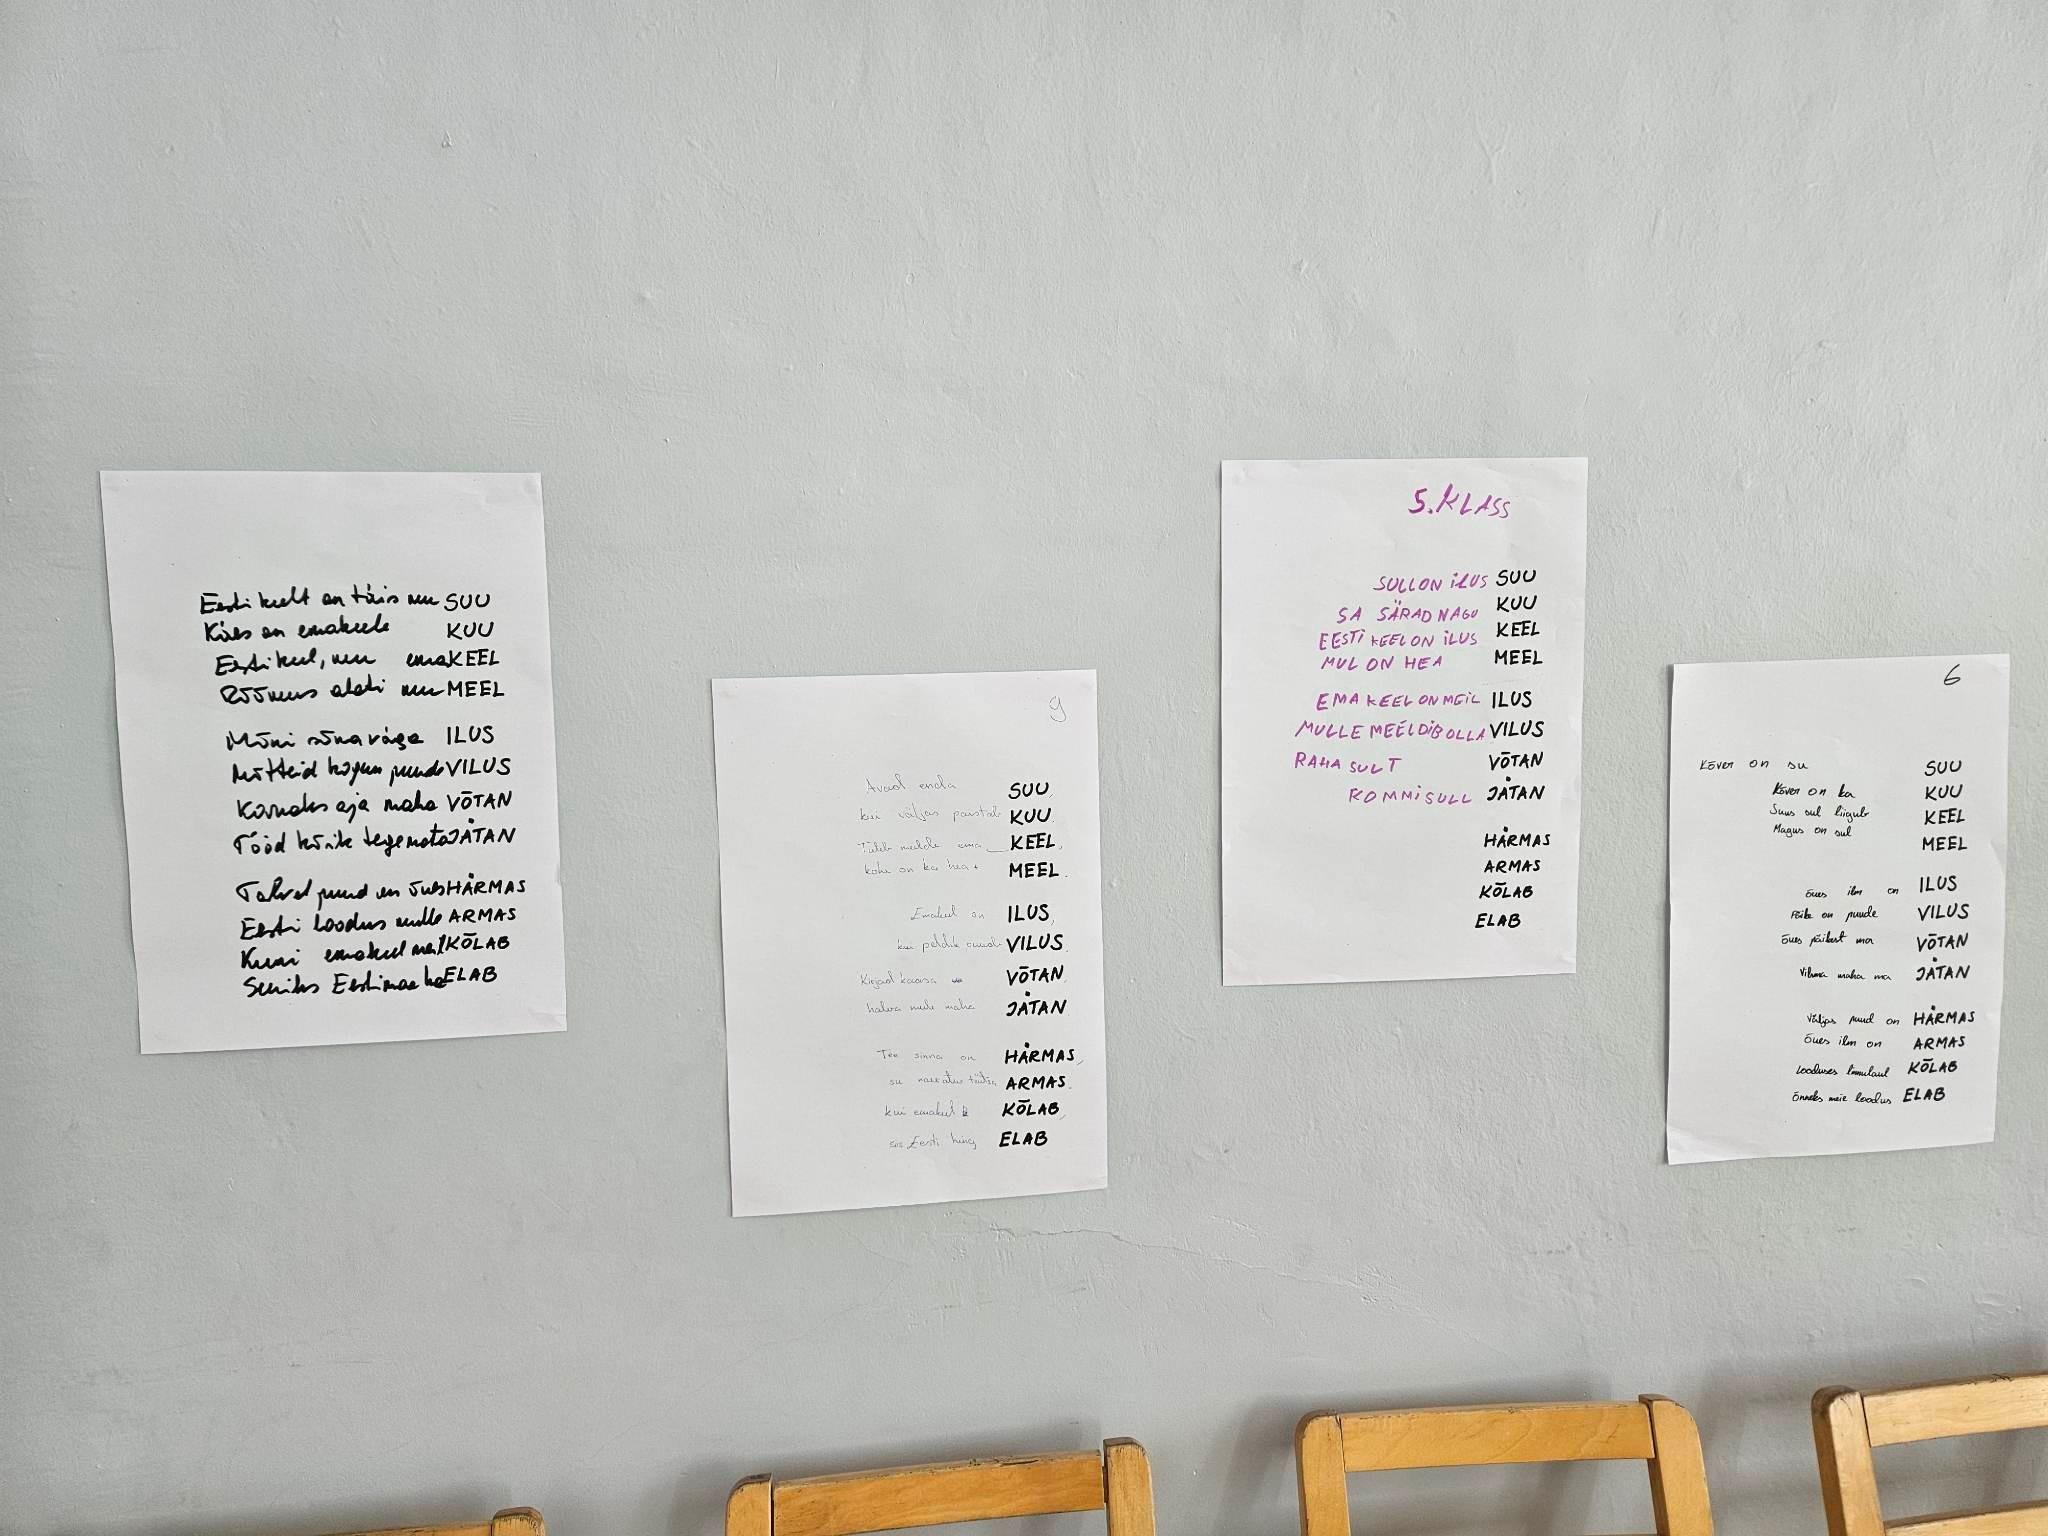 Eesti keelt on täis mu SUU
Käes on emakeele KUU
Eesti keel, mu emaKEEL
Rõõmus alati mu MEEL
Mõni sõna väga ILUS
Mõtteid kogun puude VILUS
Korraks aja maha VÕTAN
Tööd kõik tegemata JÄTAN
Talvel puud on õues HÄRMAS
Eesti loodus mulle ARMAS
Kuni emakeel meil KÕLAB
Seniks Eestimaa ka ELAB
9
Avad enda SUU,
kui väljas paistab KUU.
Tuleb meelde ema KEEL,
kohe on ka hea MEEL.
Emakeel on ILUS,
kui peldik VILUS.
Kirjad kaasa VÕTAN.
halva mulje maha JÄTAN.
Tee sinna on HÄRMAS,
su ARMAS.
kui emakeel KÕLAB,
siis Eesti hing ELAB
5. KLASS
SULL ON ILUS SUU
SA SÄRAD NAGU KUU
EESTI KEEL ON ILUS KEEL
MUL ON HEA MEEL
EMAKEEL ON MEIL ILUS
MULLE MEELDIB OLLA VILUS
RAHA SULT VÕTAN
KOMMI SULL JÄTAN
HÄRMAS
ARMAS
KÕLAB
ELAB
6
Kõver on su SUU
Kõver on ka KUU
Suus sul liigub KEEL
Magus on sul MEEL
Õues ilm on ILUS
Päike on puude VILUS
Õues päikest ma VÕTAN
Vihma maha ma JÄTAN
Väljas puud on HÄRMAS
Õues ilm on ARMAS
Looduses linnulaul KÕLAB
Õnneks meie loodus ELAB